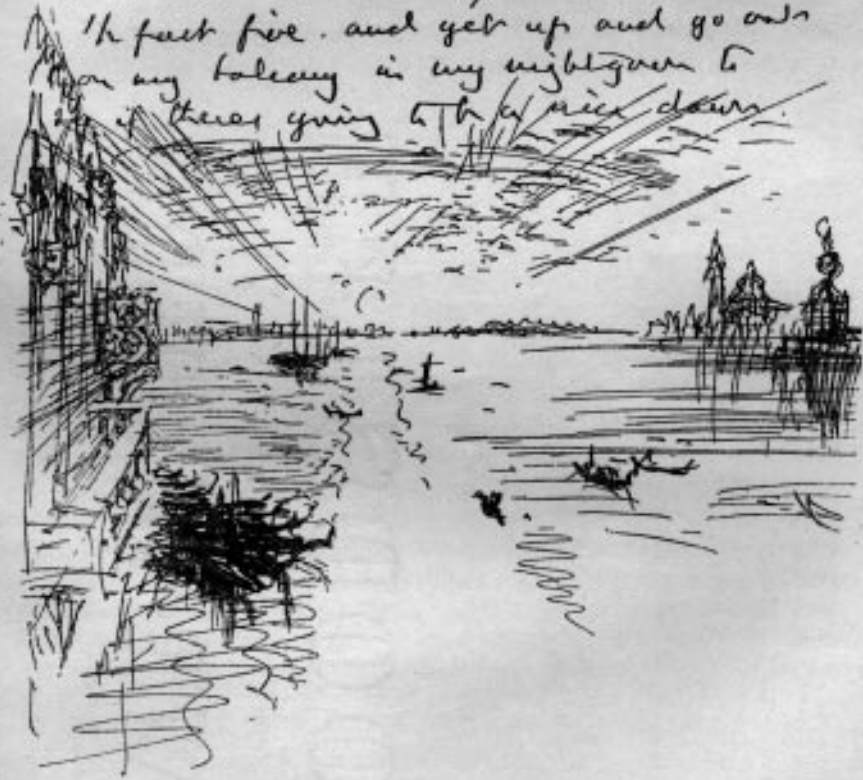 ½ past five. and get up and go out
on my balcony in my nightgown to
see if theres going to be a nice dawn.